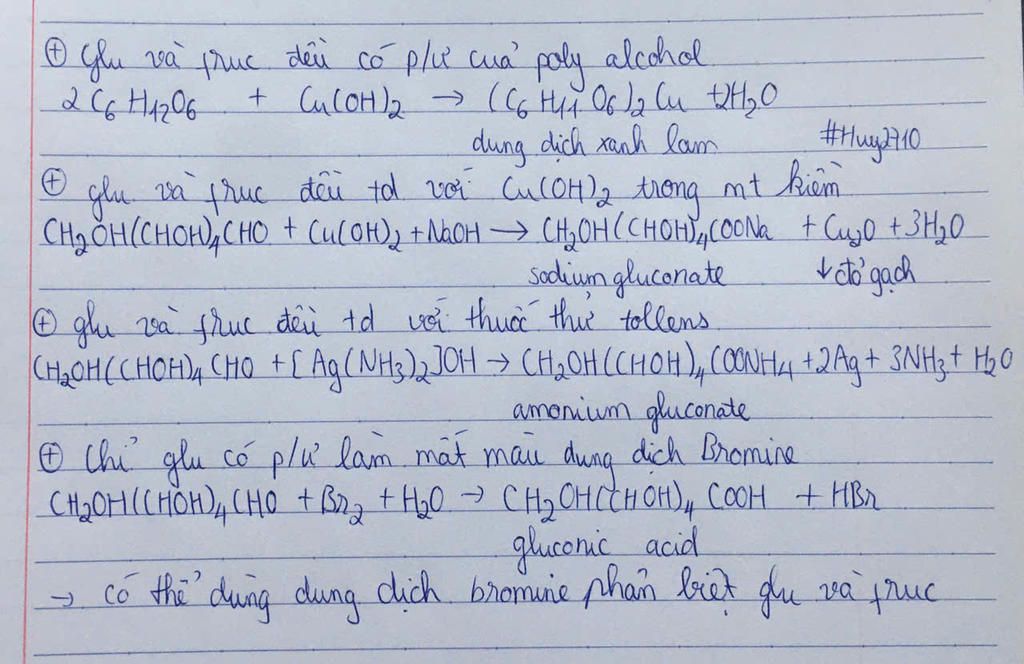 ⊕ Glu và fruc đều có p/ư của poly alcohol
2C₆H₁₂O₆ + Cu(OH)₂ → (C₆H₁₁O₆)₂Cu + 2H₂O
dung dịch xanh lam #Huy2710
⊕ glu và fruc đều td với Cu(OH)₂ trong mt kiềm
CH₂OH(CHOH)₄CHO + Cu(OH)₂ + NaOH → CH₂OH(CHOH)₄COONa + Cu₂O + 3H₂O
sodium gluconate ↓ đỏ gạch
⊕ glu và fruc đều td với thuốc thử tollens
CH₂OH(CHOH)₄CHO + [Ag(NH₃)₂]OH → CH₂OH(CHOH)₄COONH₄ + 2Ag + 3NH₃ + H₂O
amonium gluconate
⊕ Chỉ glu có p/ư làm mất màu dung dịch Bromine
CH₂OH(CHOH)₄CHO + Br₂ + H₂O → CH₂OH(CHOH)₄COOH + HBr
gluconic acid
→ có thể dùng dung dịch bromine phân biệt glu và fruc